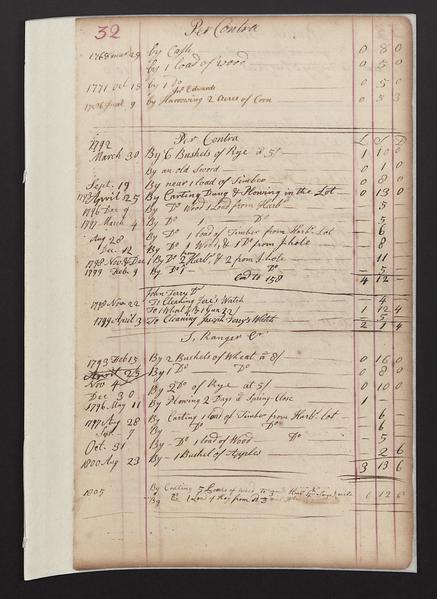 32 Per Contra
1768 by Cash 0 8 0
by 1 load of wood 0 5 0
1771 Oct 18 by 1 Do 0 5 0
Edwards
9 by Harrowing 2 Acres of Corn 0 5 3
1792 Per Contra L S D
March 30 By 6 Bushels of Rye a 5/ 1 10 0
By an old Sword 0 1 0
Sept. 19 By near 1 load of Timber 0 8 0
April 25 By Carting Dung & Plowing in the Lot 0 13 0
1796 Dec By Do Wood 1 Load from Harbr 5
1797 March 4 By Do Do 5
Aug 28 By Do 1 load of Timber from Harbr 6
Dec. 12 By Do 1 Wood, & 1 Do from hole 8
1798 Novr & Dec By Do Harbr & 2 from hole 11
1799 Feb. 9 By Do Do 5
Card to 158 4 12
John Terry Dr
1798 Nov. 22 To Cleaning Watch 4
To 1 Wheat 1 12 4
1799 April 3 To Cleaning Joseph Terry's Watch 5
2 1 4
S. Ranger Cr
1793 Feb 15 By 2 Bushels of Wheat a 8/ 0 16 0
April 25 By 1 Do Do 0 8 0
Nov 4 By 2 Do of Rye at 5/ 0 10 0
Dec 30 By Plowing 2 Days a Spring-Close 1
1796 May 11
1797 Aug 28 By Carting 1 load of Timber from Harbr Lot 6
Sept 7 By Do Do 6
Oct. 31 By Do 1 load of Wood Do 5
1800 Aug 23 By 1 Bushel of Apples 2 6
3 13 6
1805 By Carting Loads of wood 0 12 0
By Do 1 Load of Hay from